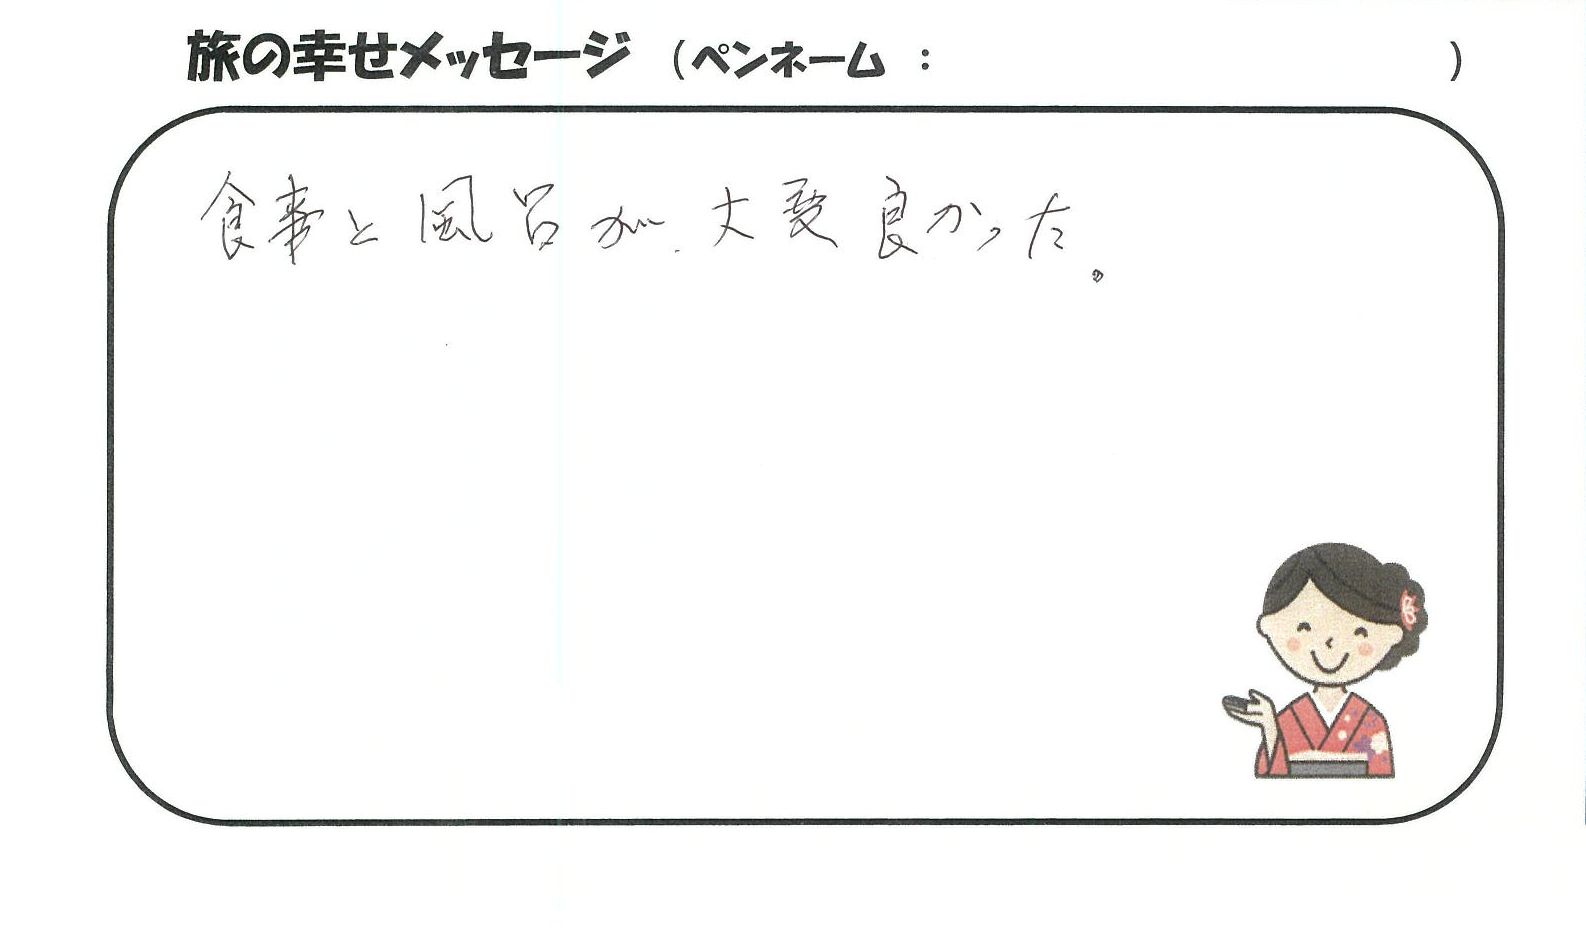 旅の幸せメッセージ （ペンネーム ： ）
食事と風呂が、大変良かった。